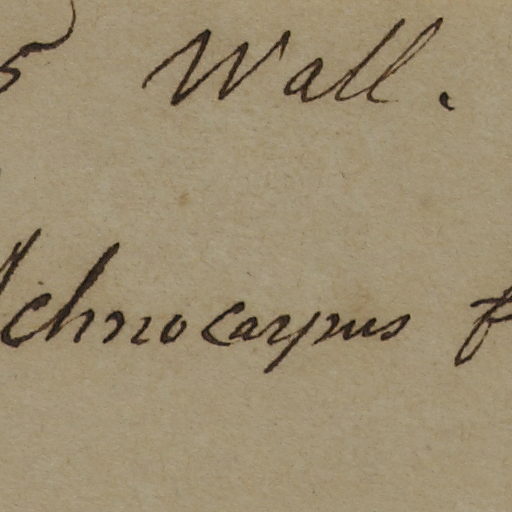 5 Wall.
Ichnocarpus f